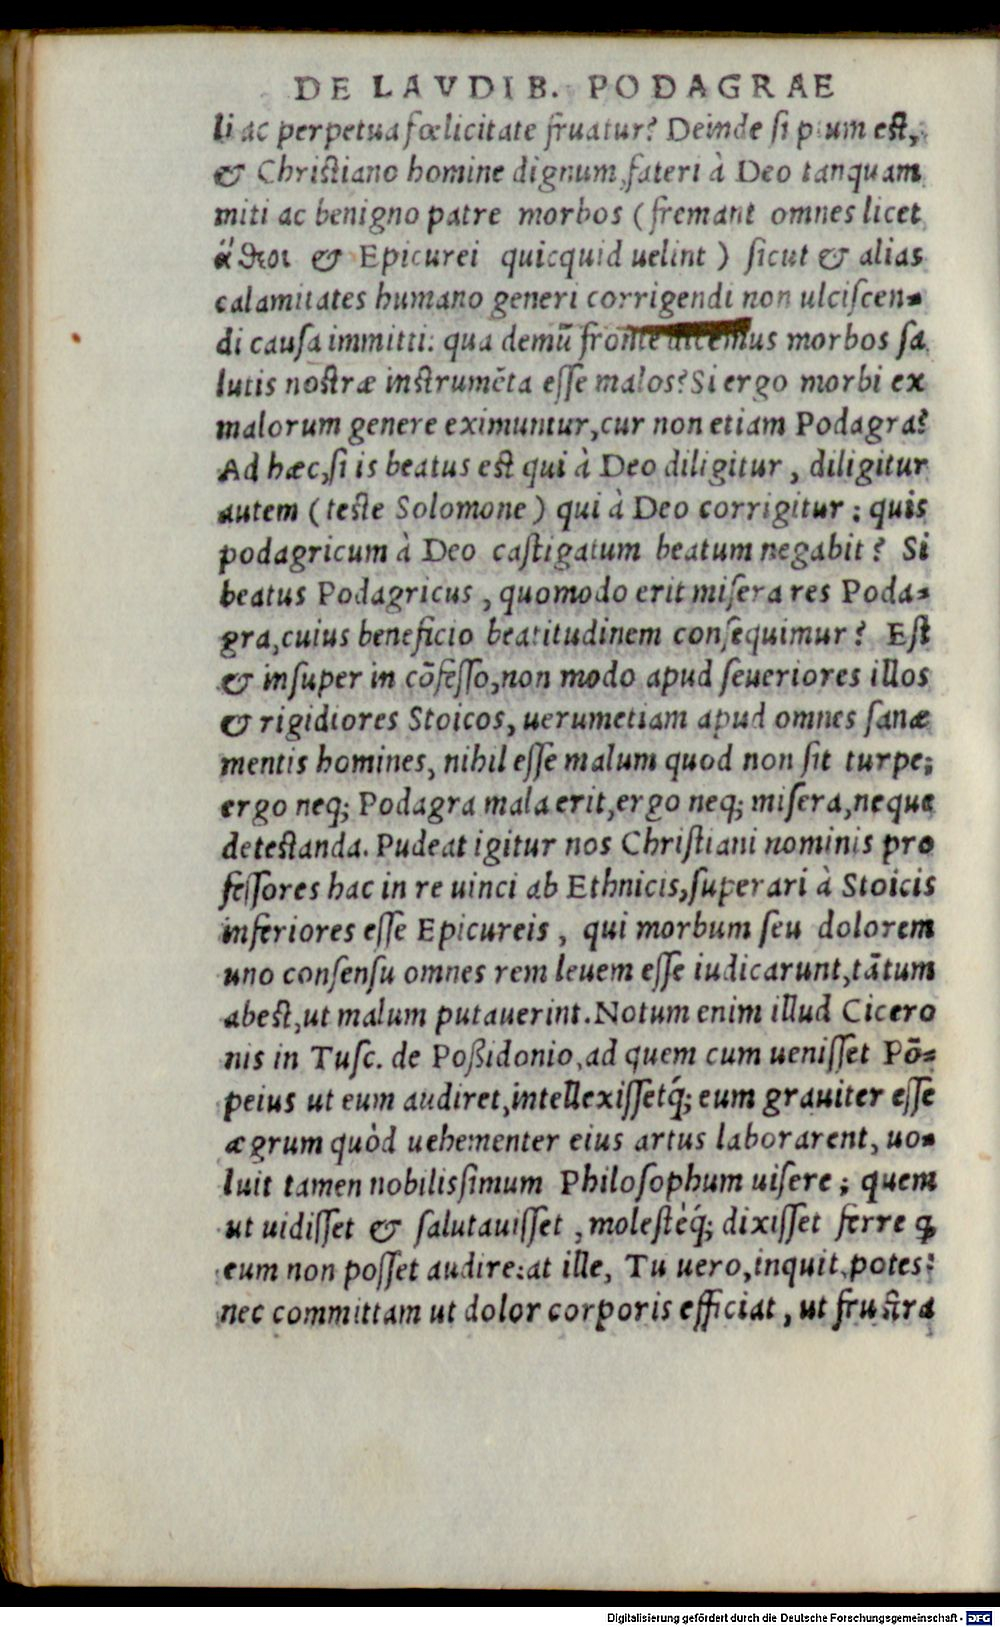 DE LAVDIB. PODAGRAE
li ac perpetua fœlicitate fruatur? Deinde si pium est,
& Christiano homine dignum, fateri à Deo tanquam
miti ac benigno patre morbos (fremant omnes licet
ἄθεοι & Epicurei quicquid uelint) sicut & alias
calamitates humano generi corrigendi non ulciscen-
di causa immitti: qua demũ fronte dicemus morbos sa
lutis nostræ instrumẽta esse malos? Si ergo morbi ex
malorum genere eximuntur, cur non etiam Podagra?
Ad hæc, si is beatus est qui à Deo diligitur, diligitur
autem (teste Solomone) qui à Deo corrigitur: quis
podagricum à Deo castigatum beatum negabit? Si
beatus Podagricus, quomodo erit misera res Poda-
gra, cuius beneficio beatitudinem consequimur? Est
& insuper in cõfesso, non modo apud seueriores illos
& rigidiores Stoicos, uerumetiam apud omnes sanæ
mentis homines, nihil esse malum quod non sit turpe;
ergo neq; Podagra mala erit, ergo neq; misera, neque
detestanda. Pudeat igitur nos Christiani nominis pro
fessores hac in re uinci ab Ethnicis, superari à Stoicis
inferiores esse Epicureis, qui morbum seu dolorem
uno consensu omnes rem leuem esse iudicarunt, tãtum
abest, ut malum putauerint. Notum enim illud Cicero
nis in Tusc. de Poßidonio, ad quem cum uenisset Põ-
peius ut eum audiret, intellexissetq́; eum grauiter esse
ægrum quòd uehementer eius artus laborarent, uo-
luit tamen nobilissimum Philosophum uisere; quem
ut uidisset & salutauisset, molestèq́; dixisset ferre ꝙ
eum non posset audire: at ille, Tu uero, inquit, potes:
nec committam ut dolor corporis efficiat, ut frustra
Digitalisierung gefördert durch die Deutsche Forschungsgemeinschaft - DFG